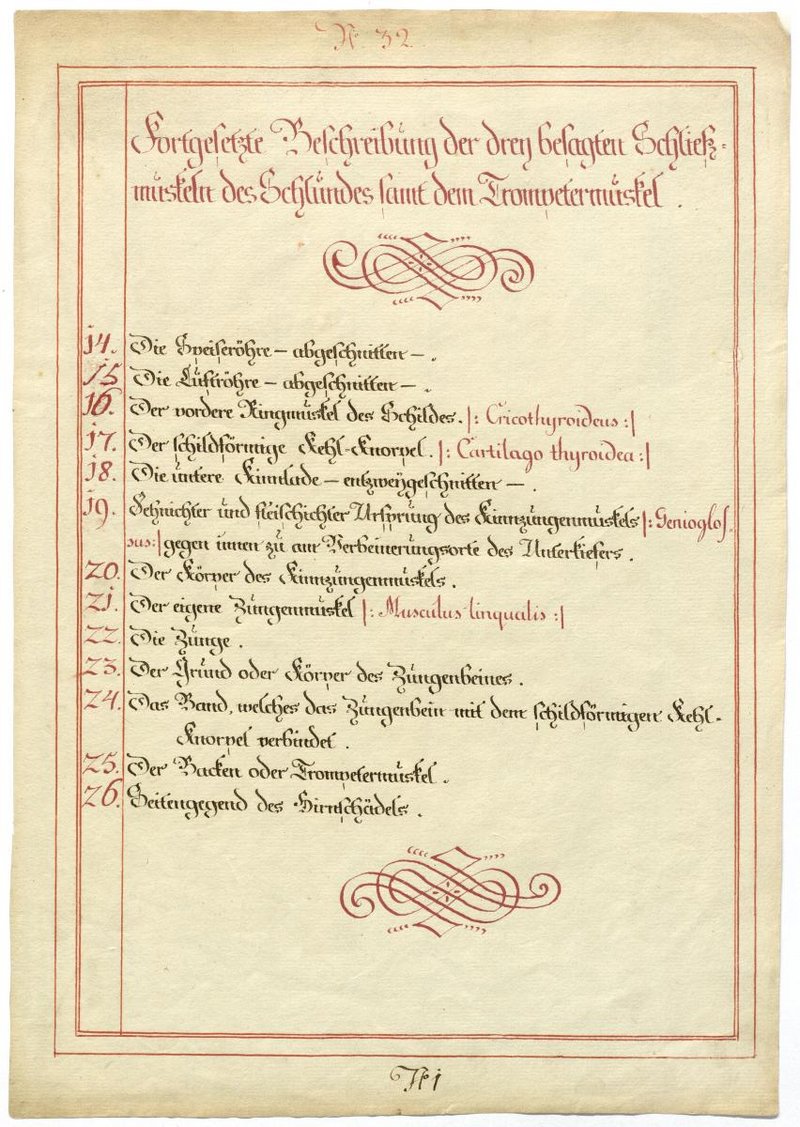 N° 32.
Fortgesetzte Beschreibung der drey besagten Schließ-
muskeln des Schlundes samt dem Trompetermuskel.
14. Die Speiseröhre – abgeschnitten –.
15 Die Luftröhre – abgeschnitten –.
16. Der vordere Ringmuskel des Schildes. |: Cricothyroideus :|
17. Der schildförmige Kehl-Knorpel. |: Cartilago thyroidea :|
18. Die untere Kinnlade – entzweygeschnitten –.
19. Sehnichter und fleischichter Ursprung des Kinnzungenmuskels |: Genioglos-
sus :| gegen innen zu am Verbeinerungsorte des Unterkiefers.
20. Der Körper des Kinnzungenmuskels.
21. Der eigene Zungenmuskel |: Musculus lingualis :|
22. Die Zunge.
23. Der Grund oder Körper des Zungenbeines.
24. Das Band, welches das Zungenbein mit dem schildförmigen Kehl-
Knorpel verbindet.
25. Der Backen oder Trompetermuskel.
26. Seitengegend des Hirnschädels.